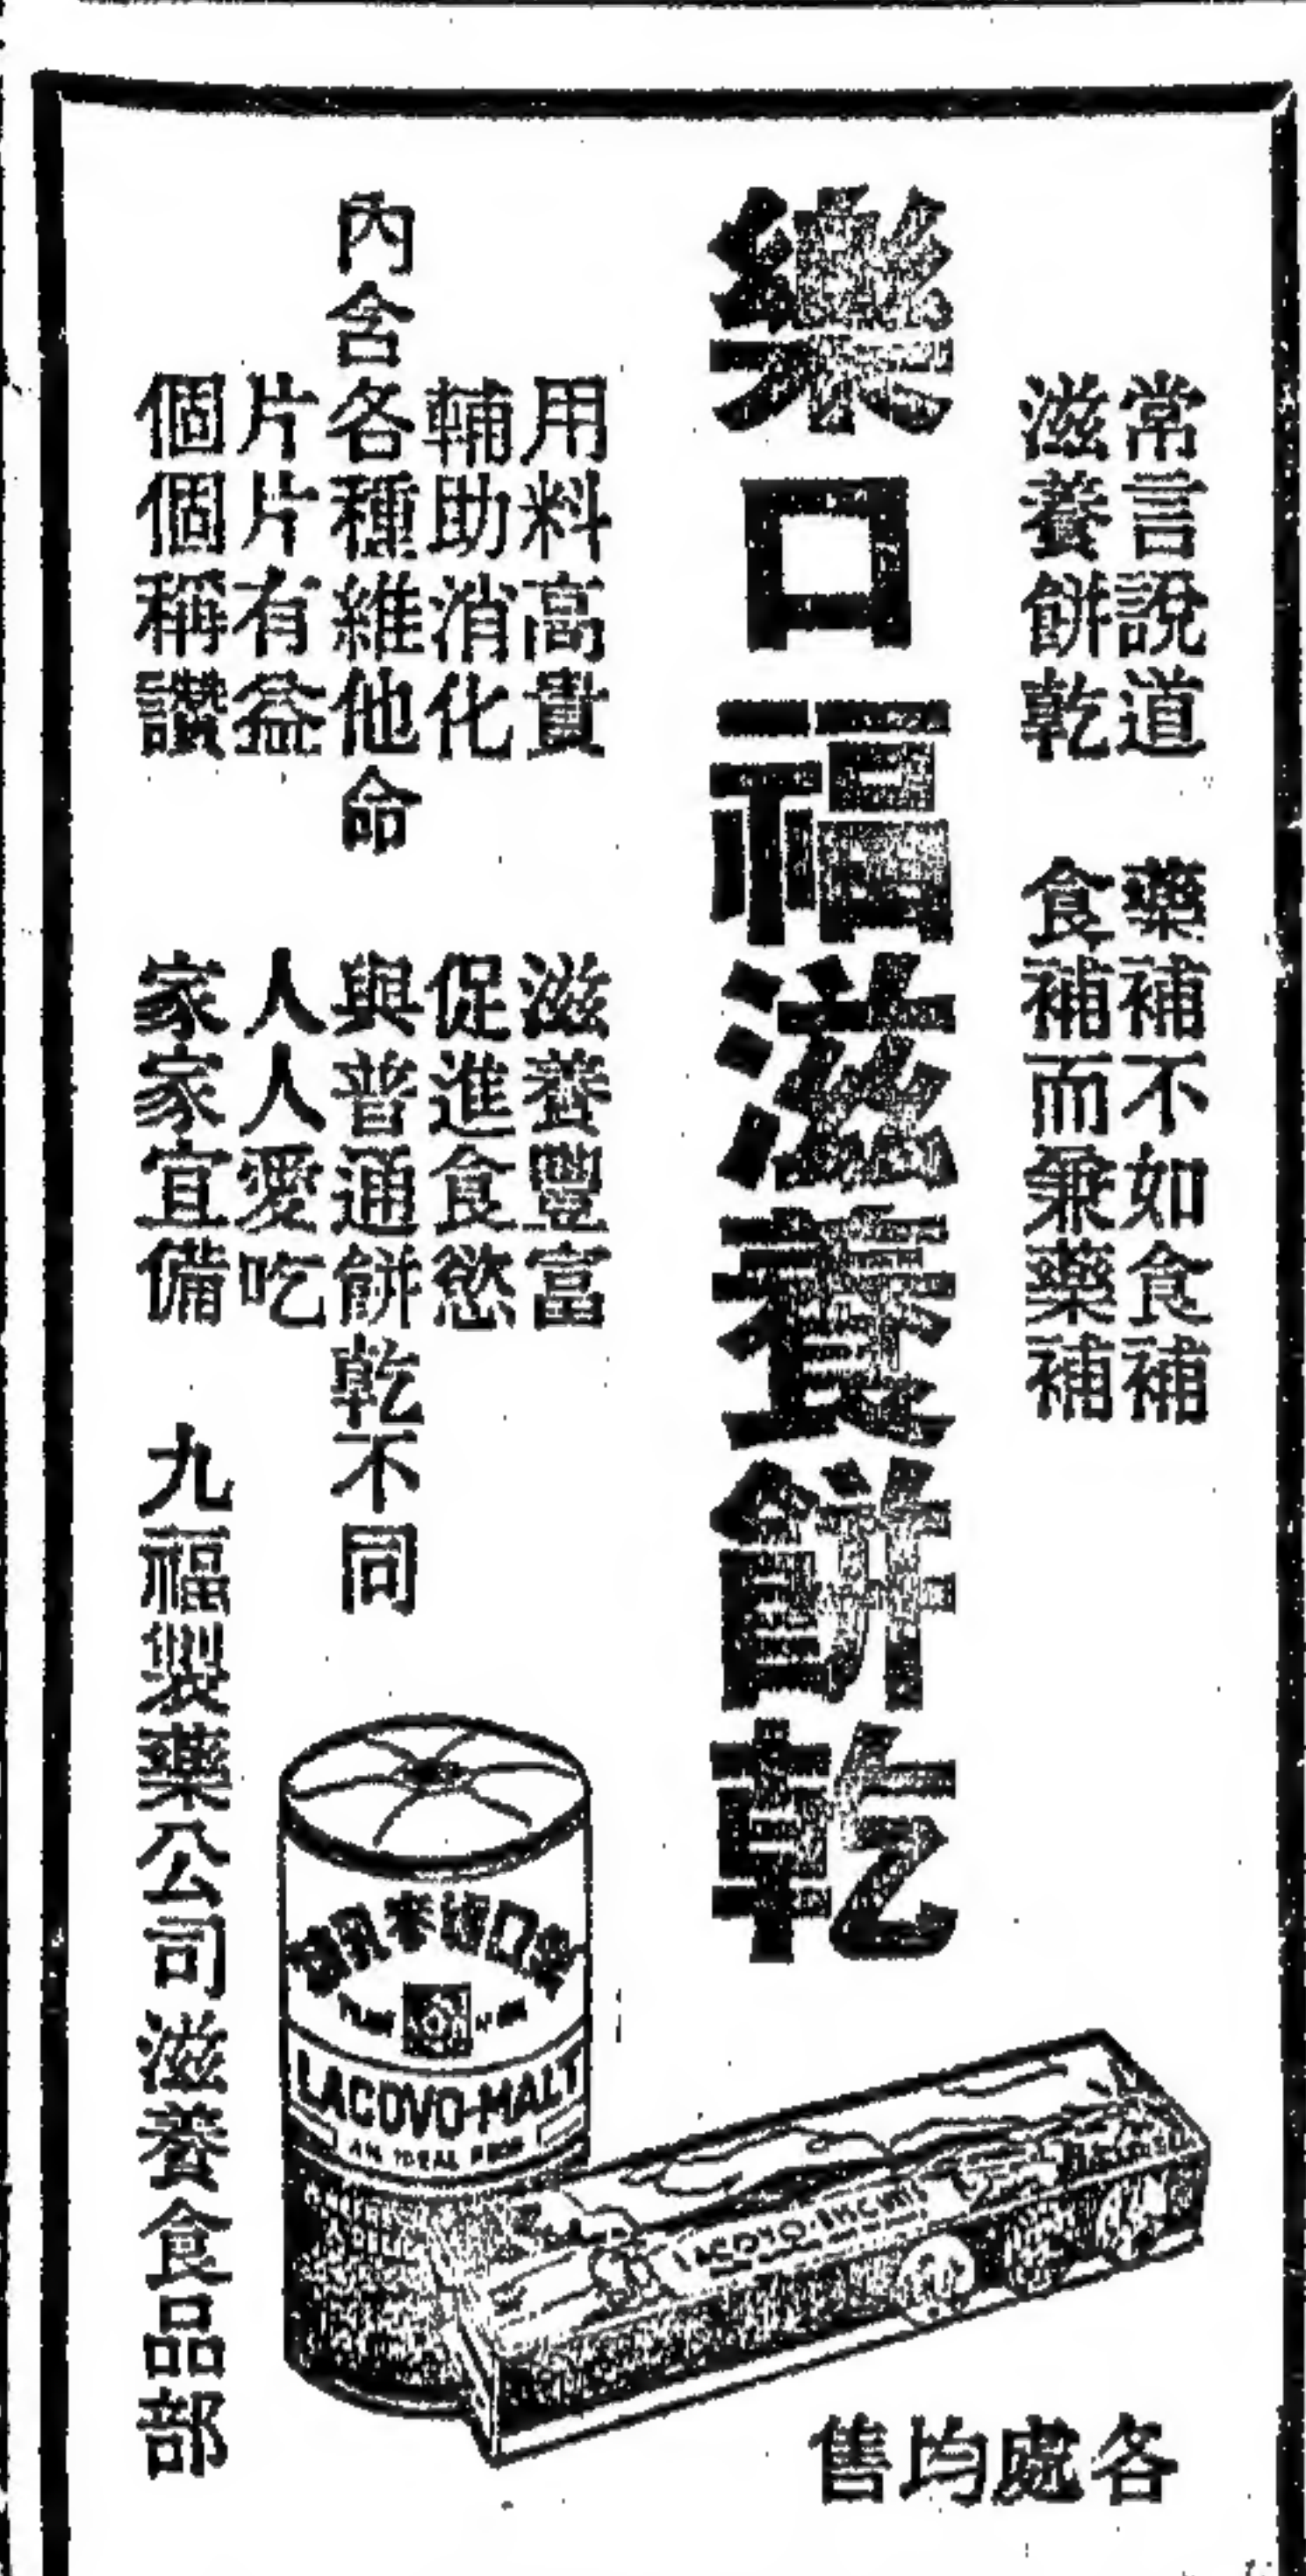 常言說道 藥補不如食補
滋養餅乾 食補而兼藥補
樂口福滋養餅乾
用料高貴 滋養豐富
輔助消化 促進食慾
內含各種維他命 與普通餅乾不同
片片有益 人人愛吃
個個稱讚 家家宜備
九福製藥公司滋養食品部
樂口福麥乳精
LACOVO-MALT
AN IDEAL
LACOVO-BISCUITS
各處均售